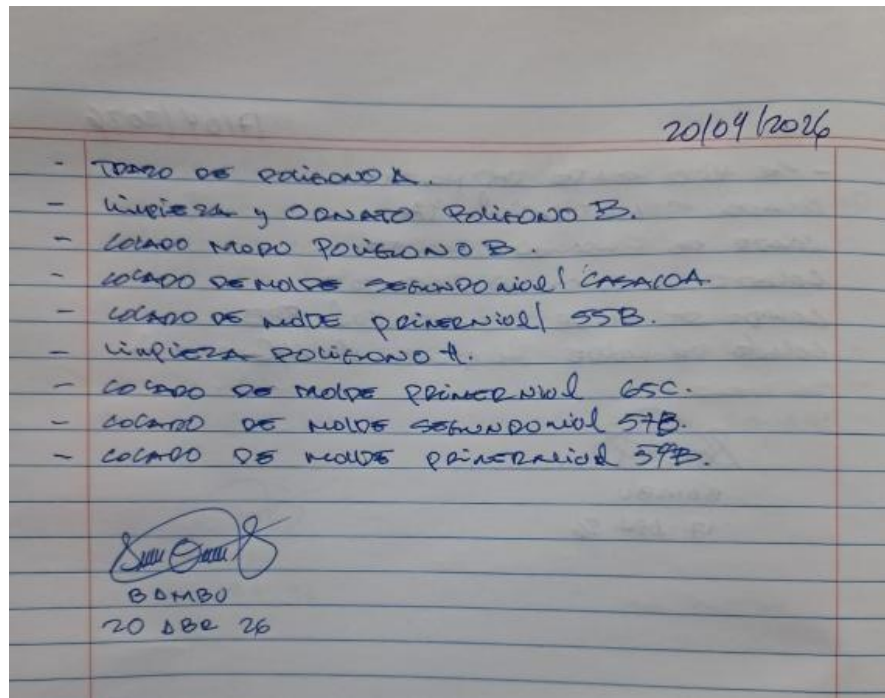 20/04/2026
- TRAZO DE POLIGONO A.
- Limpieza y ORNATO POLIGONO B.
- COLADO MODO POLIGONO B.
- COLADO DE MOLDE SEGUNDO nivel / CASA
- COLADO DE MOLDE primer Nivel / 55B.
- Limpieza POLIGONO A.
- COLADO DE MOLDE PRIMER Nivel 65C.
- COLADO DE MOLDE SEGUNDO nivel 57B.
- COLADO DE MOLDE primer nivel 59B.
BAMBU
20 ABR 26